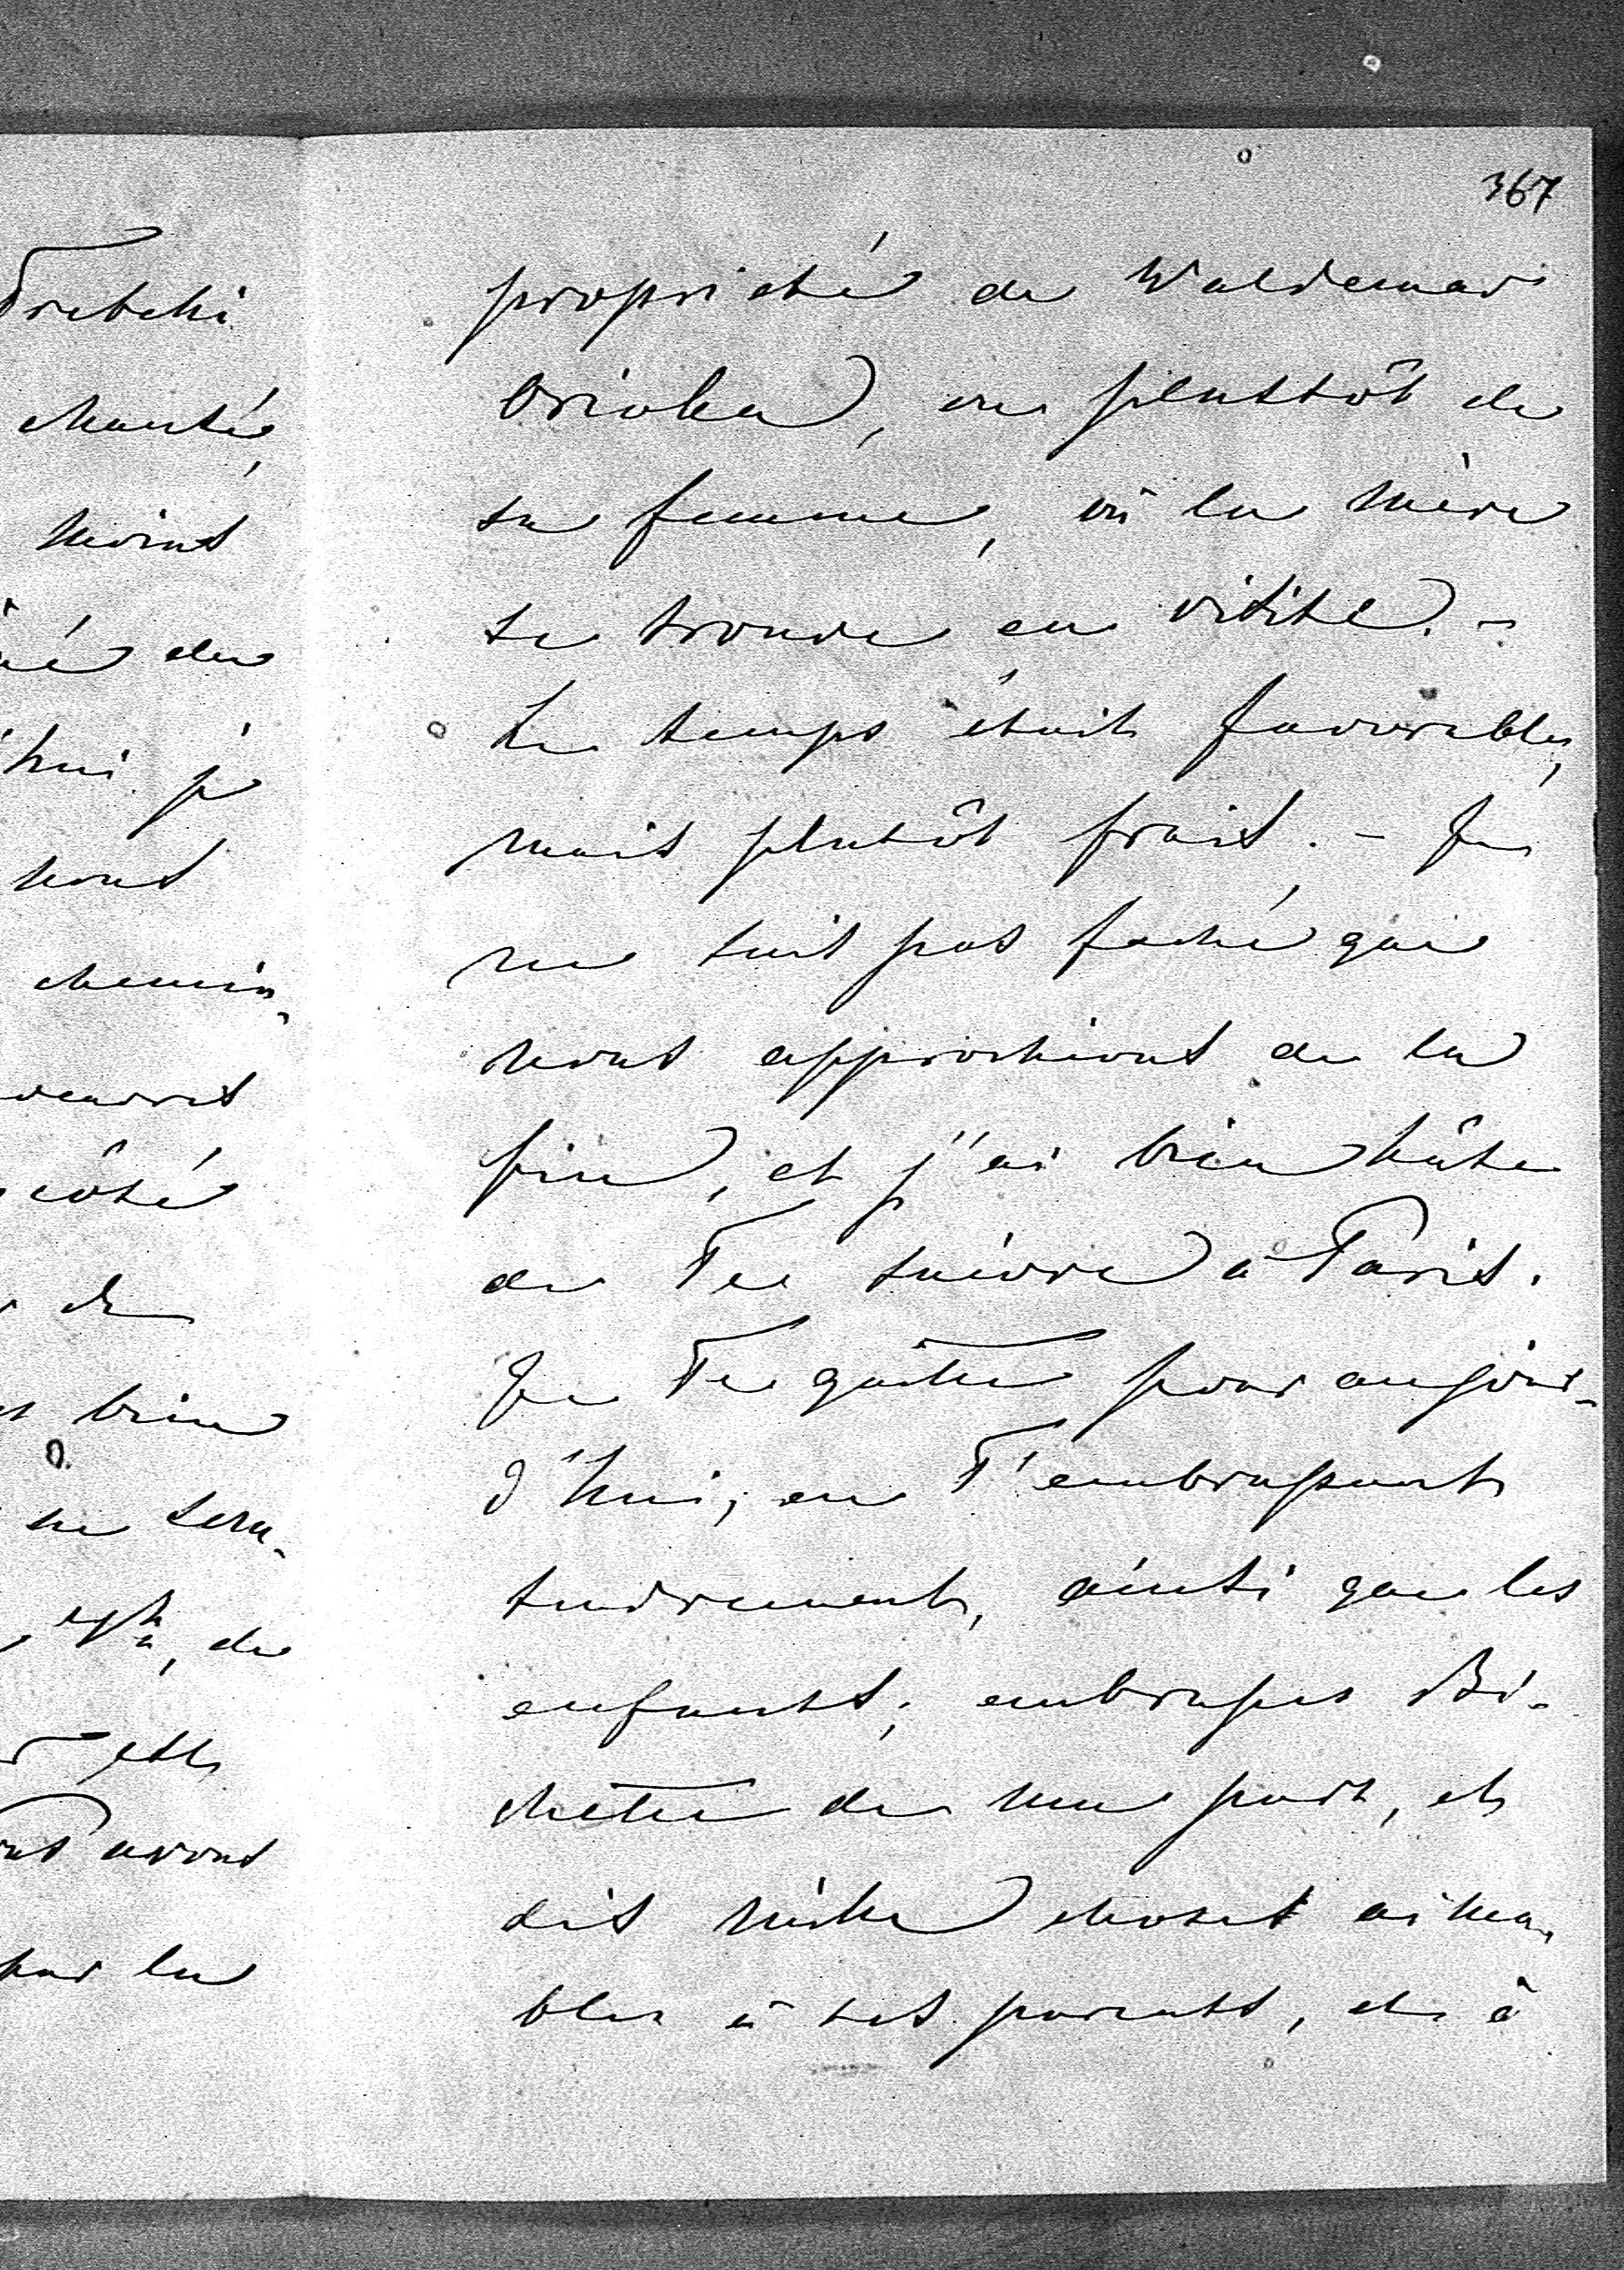 367
Trebelli
chanté,
moins
né du
'hui je
nous
chemin,
côté
de
bien
ne sera-
de
est
avons
par la
proprieté de Waldemar
Oriola, ou plustôt de
sa femme, où la mère
se trouve en visite. -
Le temps était favorable,
mais plutôt frais. - Je
ne suis pas faché que
nous approchions de la
fin, et j'ai bien hâte
de Te suivre à Paris.
Je Te quitte pour aujour-
d'hui, en T'embrassant
tendrement, ainsi que les
enfants; embrasses Bi-
chette de ma part, et
dis mille choses aima-
bles à tes parents, et à